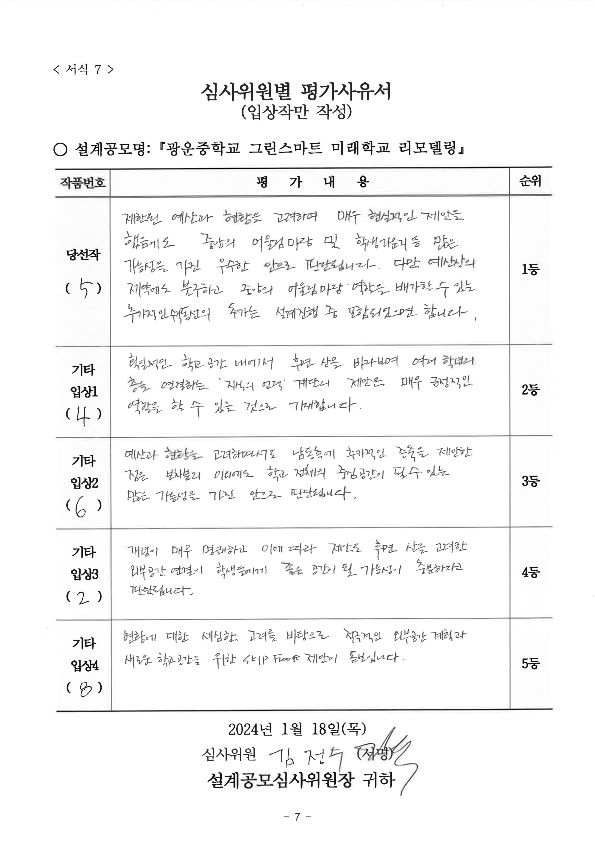 < 서식 7 >
심사위원별 평가사유서
(입상작만 작성)
○ 설계공모명: 『광운중학교 그린스마트 미래학교 리모델링』
작품번호 평 가 내 용 순위
당선작
( 5 )
제한된 예산과 현황을 고려하며 매우 현실적인 제안을
했음에도 중앙의 어울림마당 및 학생 등 많은
가능성을 가진 우수한 안으로 판단됩니다. 다만 예산상의
제약에도 불구하고 중앙의 어울림마당 역할을 배가할 수 있는
추가적인 의 추가는 설계진행 중 포함되었으면 합니다.
1등
기타
입상1
( 4 )
획일적인 학교 공간 내에서 후면 산을 바라보며 여러 학년의
층을 연결하는 '지식의 언덕' 계단의 제안은 매우 긍정적인
역할을 할 수 있는 것으로 기대합니다.
2등
기타
입상2
( 6 )
예산과 현황을 고려하면서도 남동측에 추가적인 증축을 제안한
점은 보차분리 이외에도 학교 전체의 중심공간이 될 수 있는
많은 가능성을 가진 안으로 판단됩니다.
3등
기타
입상3
( 2 )
개념이 매우 명쾌하고 이에 따라 제안된 후면 산을 고려한
외부공간 연결이 학생들에게 좋은 공간이 될 가능성이 충분하다고
판단됩니다.
4등
기타
입상4
( 8 )
현황에 대한 세심한 고려를 바탕으로 적극적인 외부공간 계획과
새로운 학교공간을 위한 skip floor 제안이 돋보입니다.
5등
2024년 1월 18일(목)
심사위원 김 정 수 (서명)
설계공모심사위원장 귀하
- 7 -